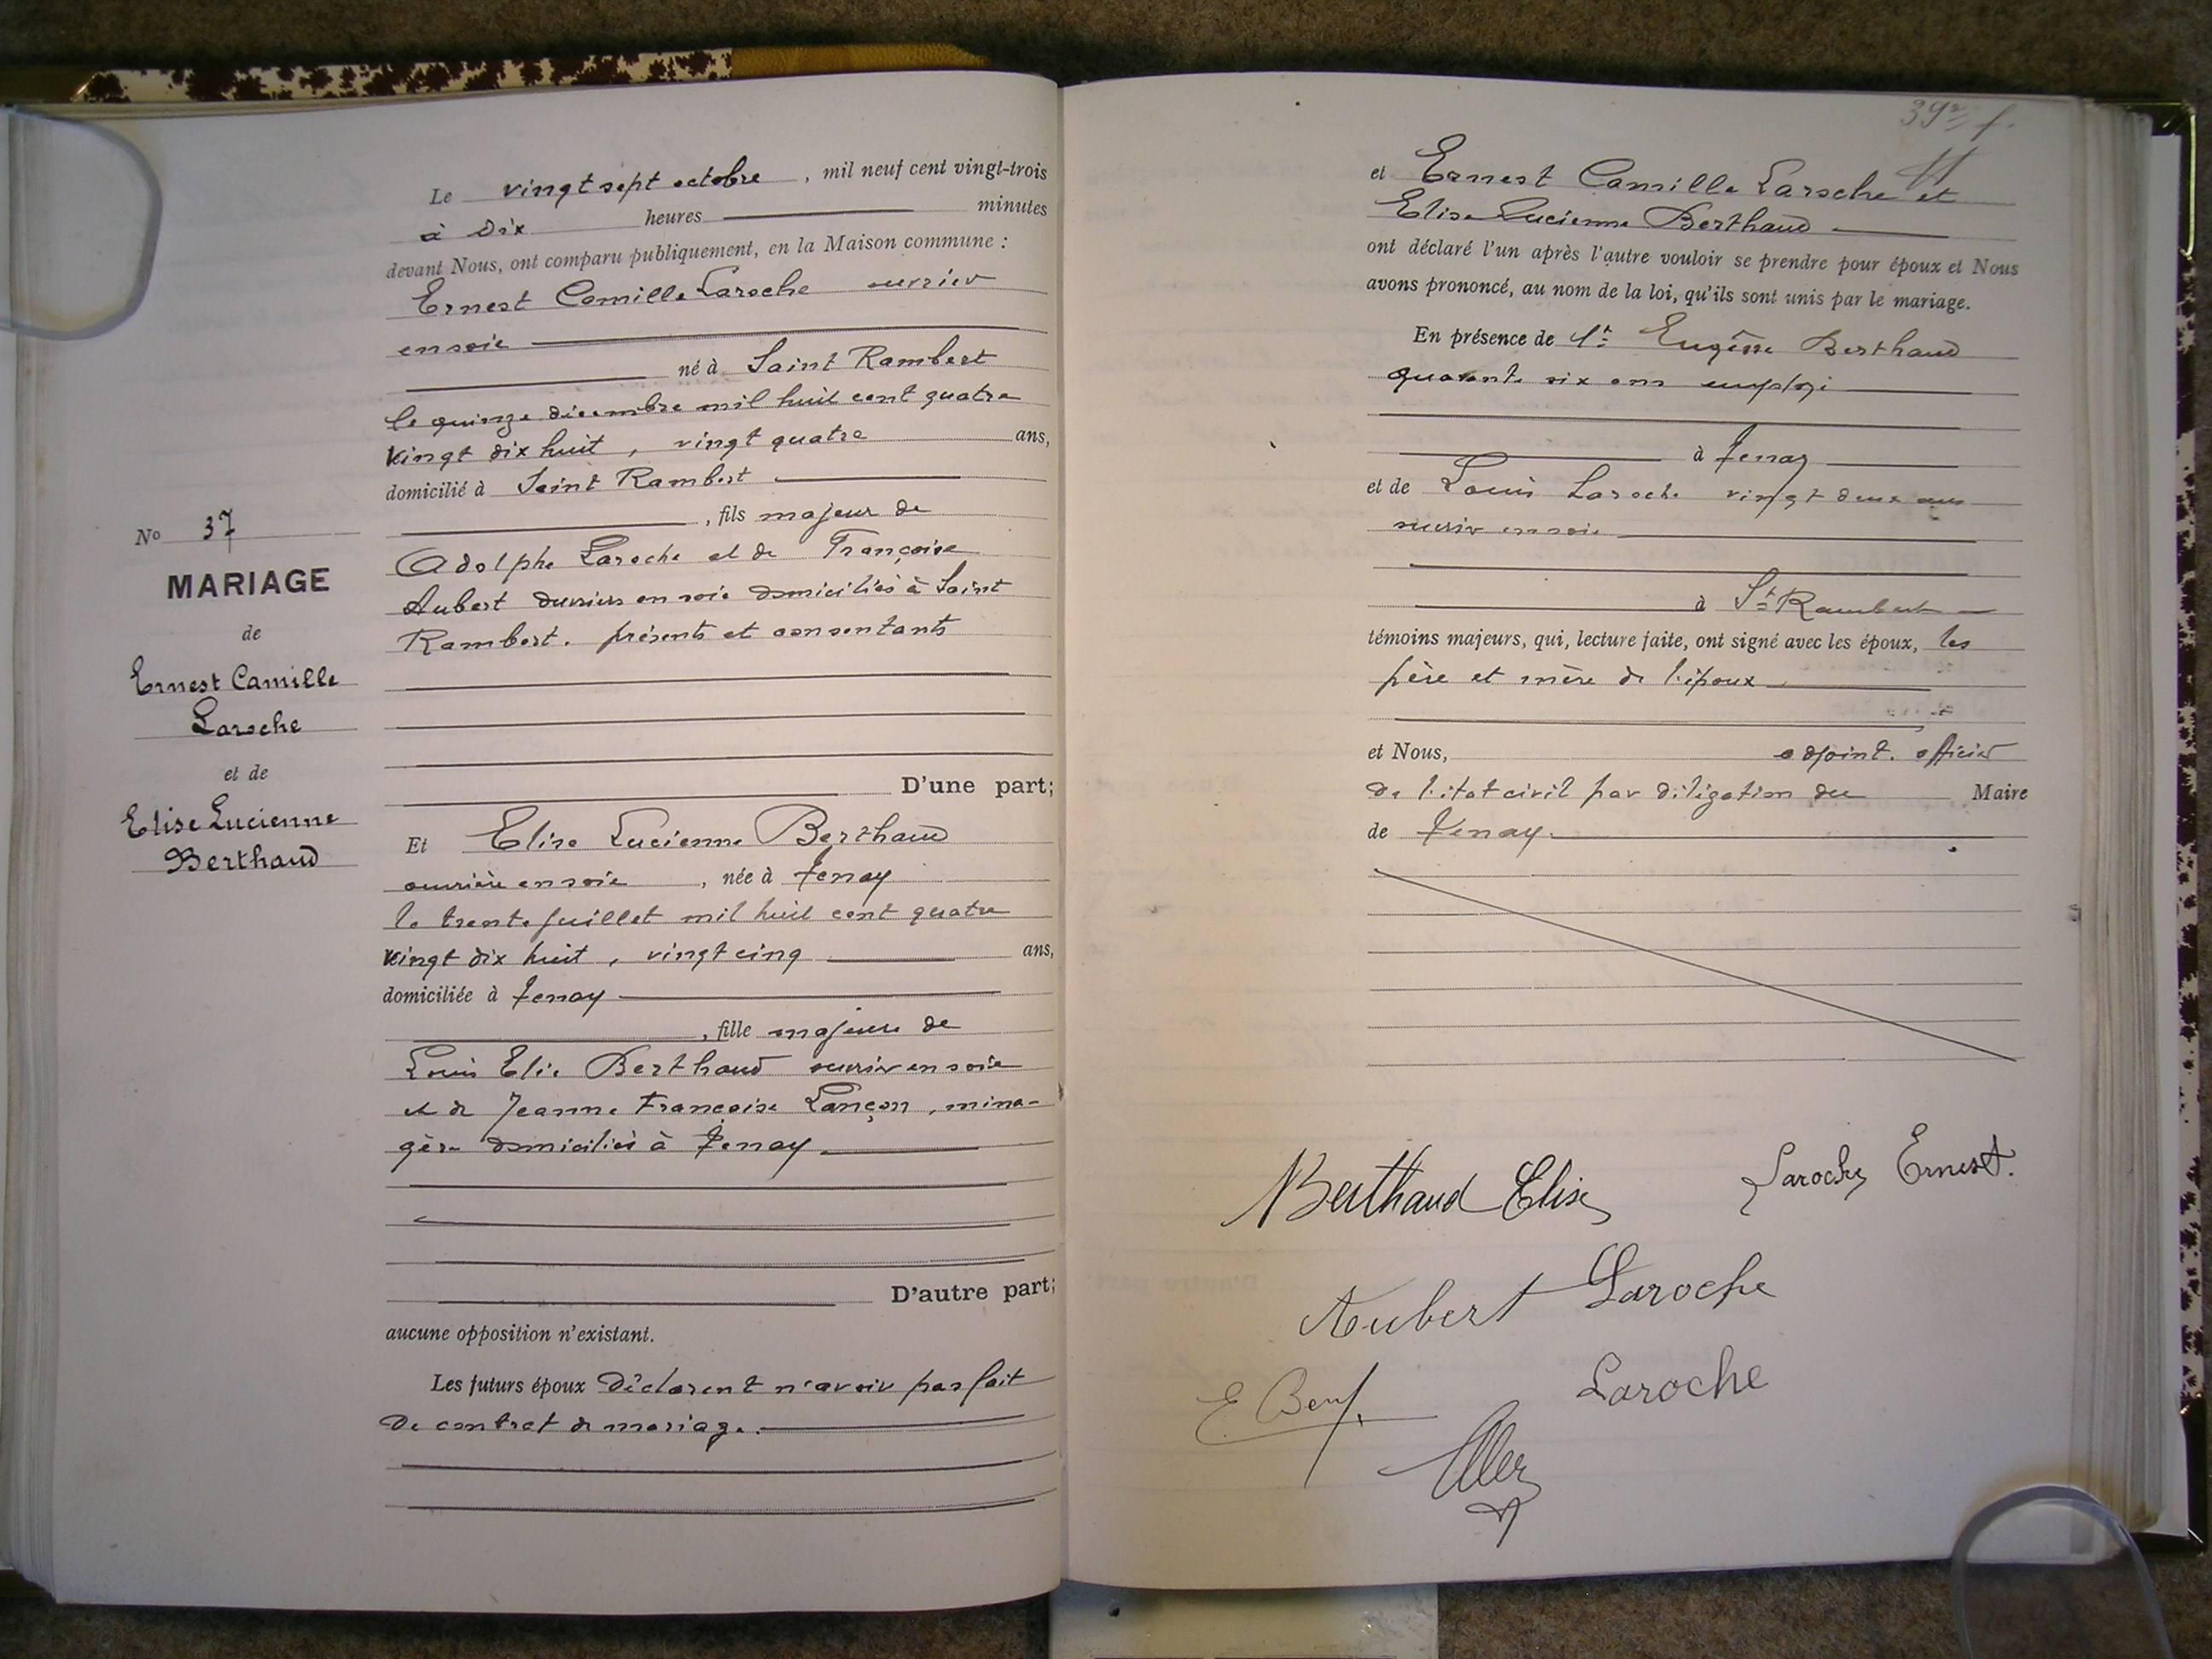 Le vingt sept octobre, mil neuf cent vingt-trois
à dix heures minutes
devant Nous, ont comparu publiquement, en la Maison commune :
Ernest Camille Laroche ouvrier
en soie
né à Saint Rambert
le quinze décembre mil huit cent quatre
vingt dix huit, vingt quatre ans,
domicilié à Saint Rambert
, fils majeur de
Adolphe Laroche et de Françoise
Aubert ouvriers en soie domiciliés à Saint
Rambert. présents et consentants
D'une part;
Et Elise Lucienne Berthaud
ouvrière en soie, née à Tenay
le trente juillet mil huit cent quatre
vingt dix huit, vingt cinq ans,
domiciliée à Tenay
, fille majeure de
Louis Elie Berthaud ouvrier en soie
et de Jeanne Françoise Lançon, ména-
gère domiciliés à Tenay
D'autre part;
aucune opposition n'existant.
Les futurs époux déclarent n'avoir pas fait
de contrat de mariage.
No 37
MARIAGE
de
Ernest Camille
Laroche
et de
Elise Lucienne
Berthaud
39
et Ernest Camille Laroche et
Elise Lucienne Berthaud
ont déclaré l'un après l'autre vouloir se prendre pour époux et Nous
avons prononcé, au nom de la loi, qu'ils sont unis par le mariage.
En présence de Eugène Berthaud
quarante six ans employé
à Tenay
et de Louis Laroche vingt deux ans
ouvrier en soie
à St Rambert
témoins majeurs, qui, lecture faite, ont signé avec les époux, les
père et mère de l'époux
et Nous, adjoint. officier
de l'état civil par délégation du Maire
de Tenay.
Berthaud Elise Laroche Ernest.
Aubert Laroche
Laroche